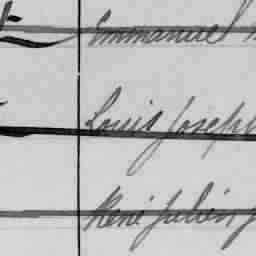 Emmanuel
Louis Joseph
René Julien